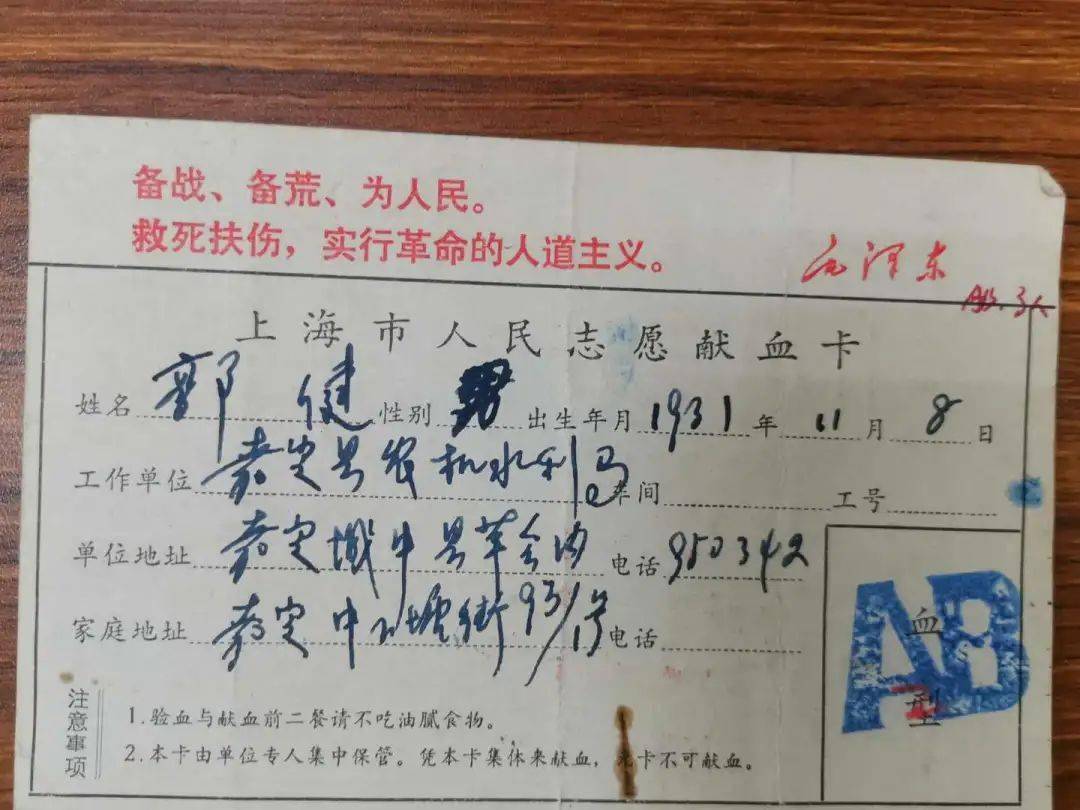 备战、备荒、为人民。
救死扶伤，实行革命的人道主义。 毛泽东
上海市人民志愿献血卡
姓名 郭健 性别 男 出生年月 1931 年 11 月 8 日
工作单位 嘉定县农机水利局 车间 工号
单位地址 嘉定城中县革会内 电话 950342
家庭地址 嘉定中下塘街93/1号 电话
血型 AB
注意事项
1.验血与献血前二餐请不吃油腻食物。
2.本卡由单位专人集中保管。凭本卡集体来献血，无卡不可献血。